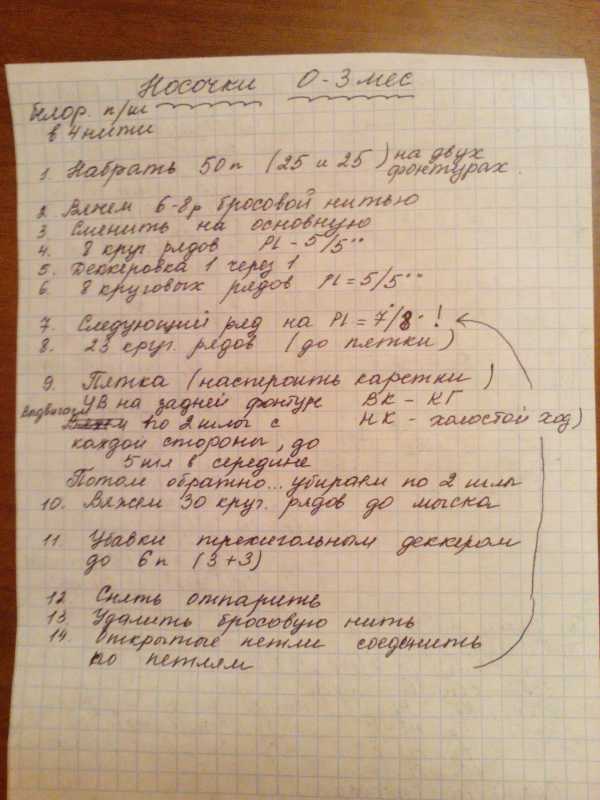 Носочки 0-3 мес
белор. п/ш
в 4 нити
1. Набрать 50 п (25 и 25) на двух фонтурах.
2. Вяжем 6-8р бросовой нитью
3. Сменить на основную
4. 8 круг рядов Pl - 5/5··
5. Деккеровка 1 через 1
6. 8 круговых рядов Pl = 5/5··
7. Следующий ряд на Pl = 7·/8· !
8. 23 круг. рядов (до пятки)
9. Пятка (настроить каретки)
ЧВ на задней фонтуре ВК - КГ
Выдвигаем по 2 иглы с НК - холостой ход)
каждой стороны, до
5 игл в середине
Потом обратно... убираем по 2 иглы
10. Вяжем 30 круг. рядов до мыска
11. Убавки трехигольным деккером
до 6 п (3+3)
12. Снять отпарить
13. Удалить бросовую нить
14. Открытые петли соединить
по петлям